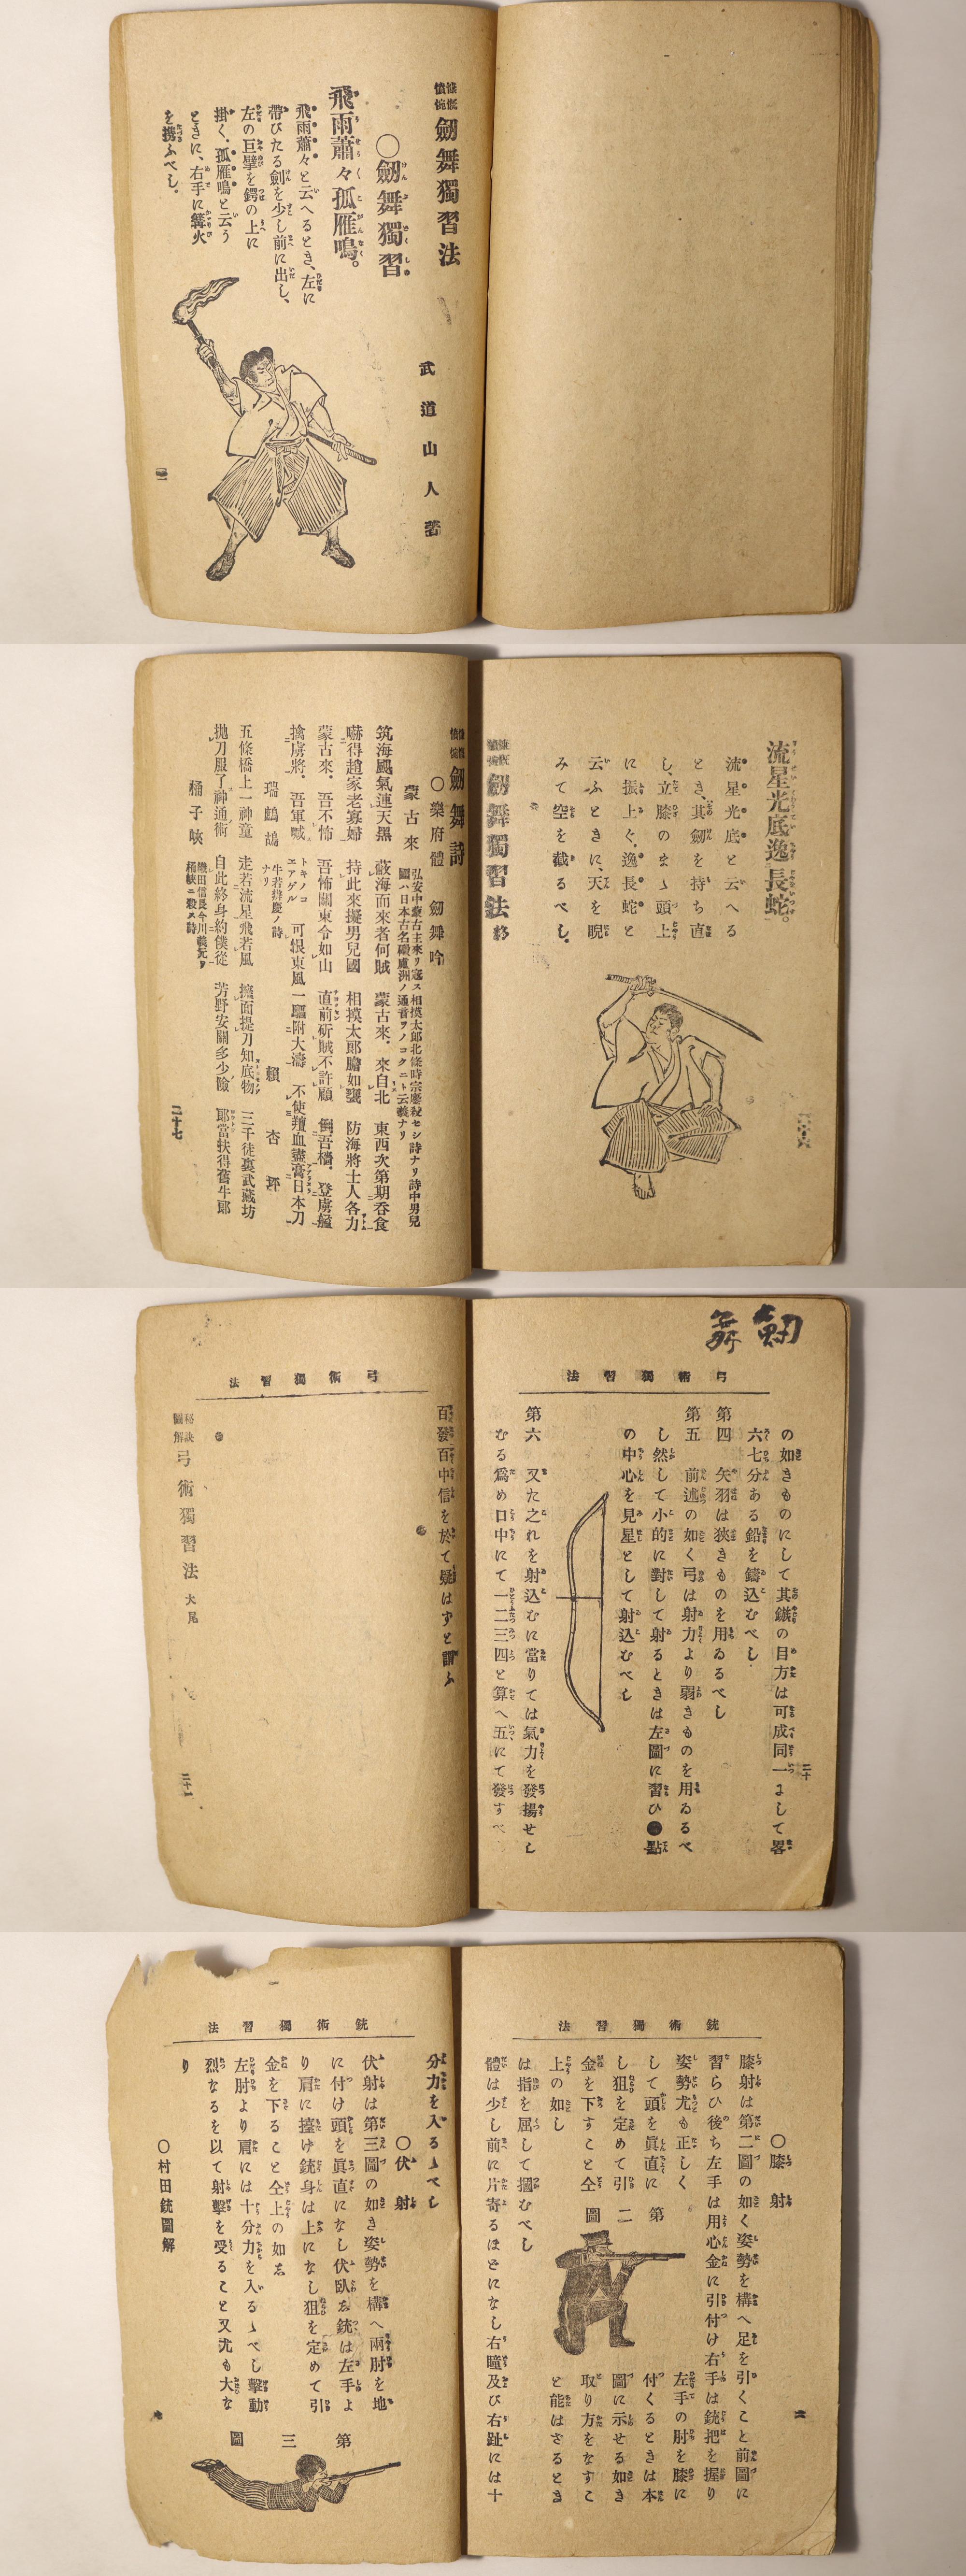 慷慨憤惋 劒舞獨習法
武道山人著
○劒舞獨習
飛雨蕭々孤雁鳴。
飛雨蕭々と云へるとき、左に
帶びたる劍を少し前に出し、
左の巨擘を鍔の上に
掛く、孤雁鳴と云う
ときに、右手に篝火
を携ふべし。
流星光底逸長蛇。
流星光底と云へる
とき、其劒を持ち直
し、立膝のまゝ頭上
に振上ぐ、逸長蛇と
云ふときに、天を睨
みて空を截るべし。
慷慨憤惋 劒舞獨習法 終
慷慨憤惋 劒舞詩
○樂府體 劒舞吟
蒙古來
筑海颶氣連天黑 蔽海而來者何賊 蒙古來。來自北 東西次第期呑食
嚇得趙家老寡婦 持此來擬男兒國 相摸太郎膽如甕 防海將士人各力
蒙古來。吾不怖 吾怖關東令如山 直前斫賊不許顧 倒吾檣。登虜艦
擒虜將。吾軍喊 可恨東風一驅附大濤 不使羶血盡膏日本刀
瑞鷓鴣 牛若辨慶ノ詩ナリ 賴杏坪
五條橋上一神童 走若流星飛若風 擔面提刀知底物 三千徒裏武藏坊
拋刀服了神通術 自此終身約僕從 芳野安關多少險 耶當扶得舊牛郎
桶子峽 織田信長今川義元ヲ桶峽ニ殺ス詩
二十七
劒舞
弓術獨習法
の如きものにして其鏃の目方は可成同一にして畧
六七分ある鉛を鑄込むべし
第四 矢羽は狹きものを用ゐるべし
第五 前述の如く弓は射力より弱きものを用ゐるべ
し然して小的に對して射るときは左圖に習ひ●點
の中心を見星として射込むべし
第六 又た之れを射込むに當りては氣力を發揚せし
むる爲め口中にて一二三四と算へ五にて發すべ
二十
弓術獨習法
百發百中信を於て疑はずと謂ふ
秘訣圖解 弓術獨習法 大尾
二十一
銃術獨習法
○膝射
膝射は第二圖の如く姿勢を構へ足を引くこと前圖に
習らひ後ち左手は用心金に引付け右手は銃把を握り
姿勢尤も正しく 左手の肘を膝に
して頭を眞直に 付くるときは本
し狙を定めて引 圖に示せる如き
金を下すこと仝 取り方をなすこ
上の如し と能はざるとき
第二圖
は指を屈して摑むべし
體は少し前に片寄るほどになし右瞳及び右趾には十
銃術獨習法
分力を入るゝべし
○伏射
伏射は第三圖の如き姿勢を構へ兩肘を地
に付け頭を眞直になし伏臥し銃は左手よ
り肩に擔け銃身は上になし狙を定めて引
金を下ること仝上の如し
左肘より肩には十分力を入るゝべし擊動
烈なるを以て射擊を受ること又尤も大な
り
第三圖
○村田銃圖解